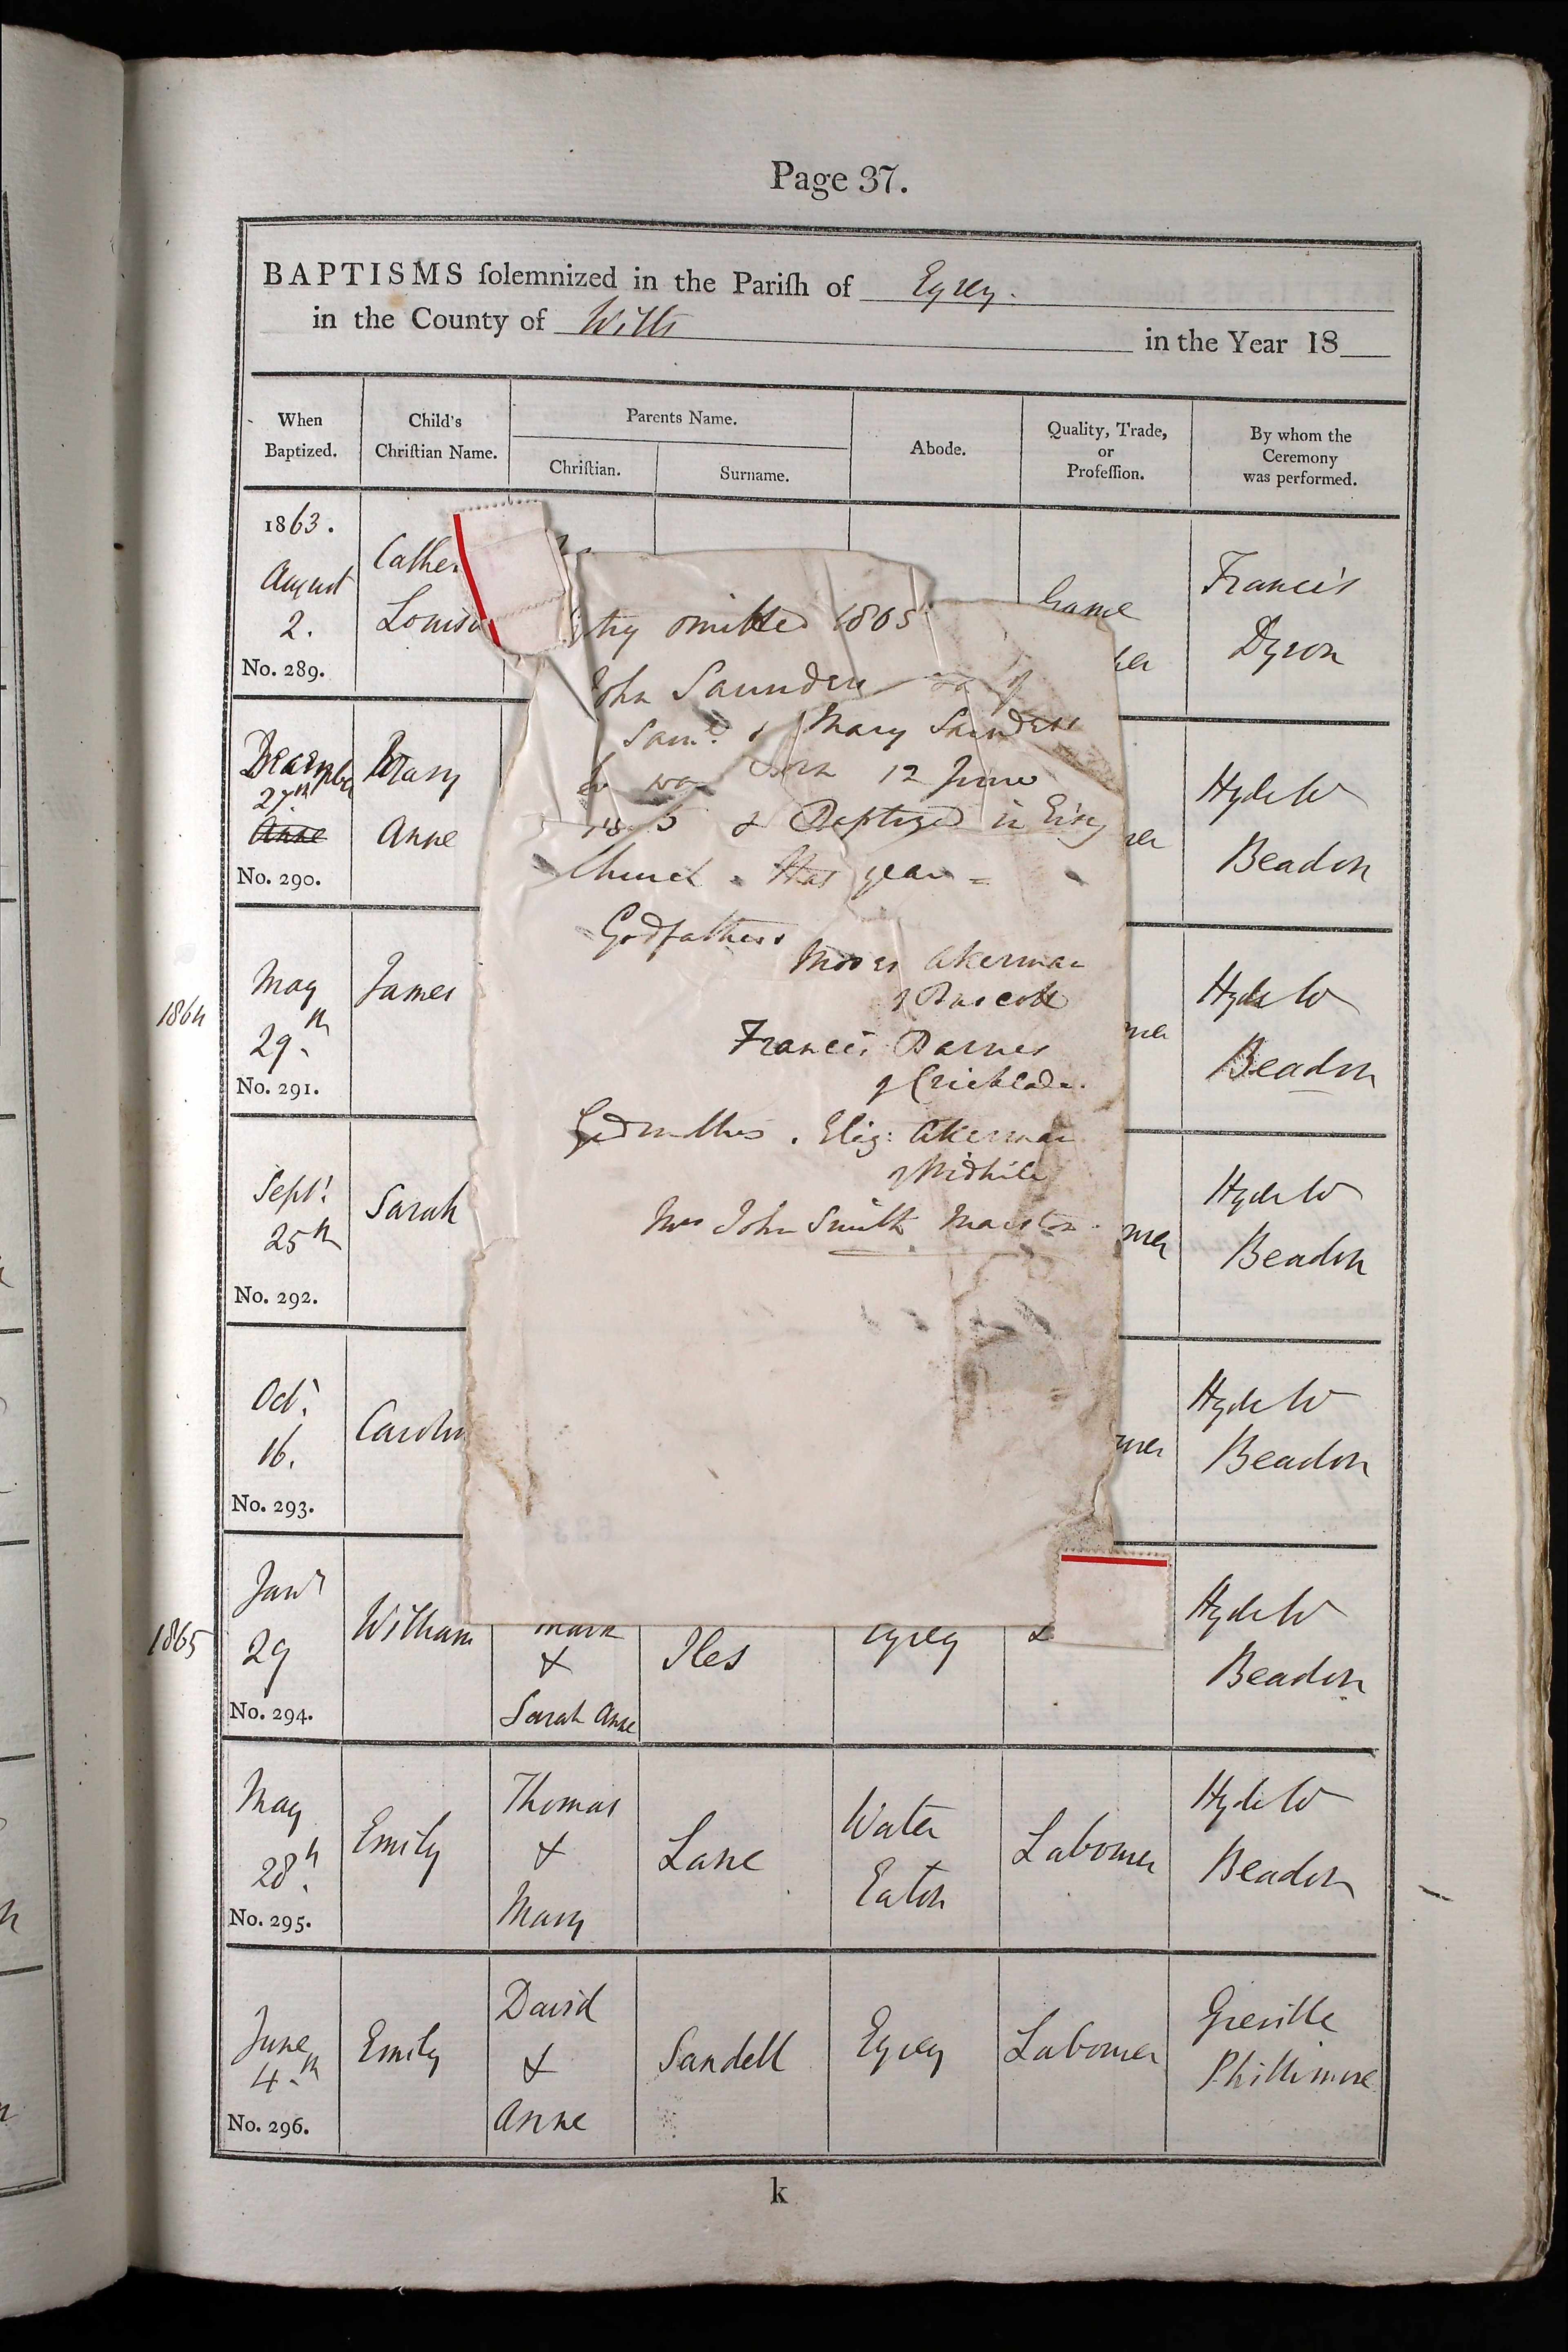 Page 37.
BAPTISMS ſolemnized in the Pariſh of Eysey.
in the County of Wilts in the Year 18
When Baptized.
Child's Chriſtian Name.
Parents Name.
Chriſtian.
Surname.
Abode.
Quality, Trade, or Profeſſion.
By whom the Ceremony was performed.
1863.
August
2.
No. 289.
Cather
Louisa
Game
Francis
Dyson
December
27th
Anne
No. 290.
Mary
Anne
Hyde W
Beadon
1864
May
29th
No. 291.
James
Hyde W
Beadon
Septr
25th
No. 292.
Sarah
Hyde W
Beadon
Octr
16.
No. 293.
Carolin
Hyde W
Beadon
1865
Jany
29
No. 294.
William
Mark
&
Sarah Anne
Iles
Eysey
Hyde W
Beadon
May
28th
No. 295.
Emily
Thomas
&
Mary
Lane
Water
Eaton
Labourer
Hyde W
Beadon
June
4th
No. 296.
Emily
David
&
Anne
Sandell
Eysey
Labourer
Greville
Phillimore
k
try omitted 1805
John Saunders of
Saml & Mary Saunders
was Born 12 June
& Baptized in Eisey
Church that year =
Godfathers
Moses Akerman
of Burcott
Francis Barnes
of Cricklade.
Godmothers. Eliz: Akerman
of Widhill
Mrs John Smith Marston